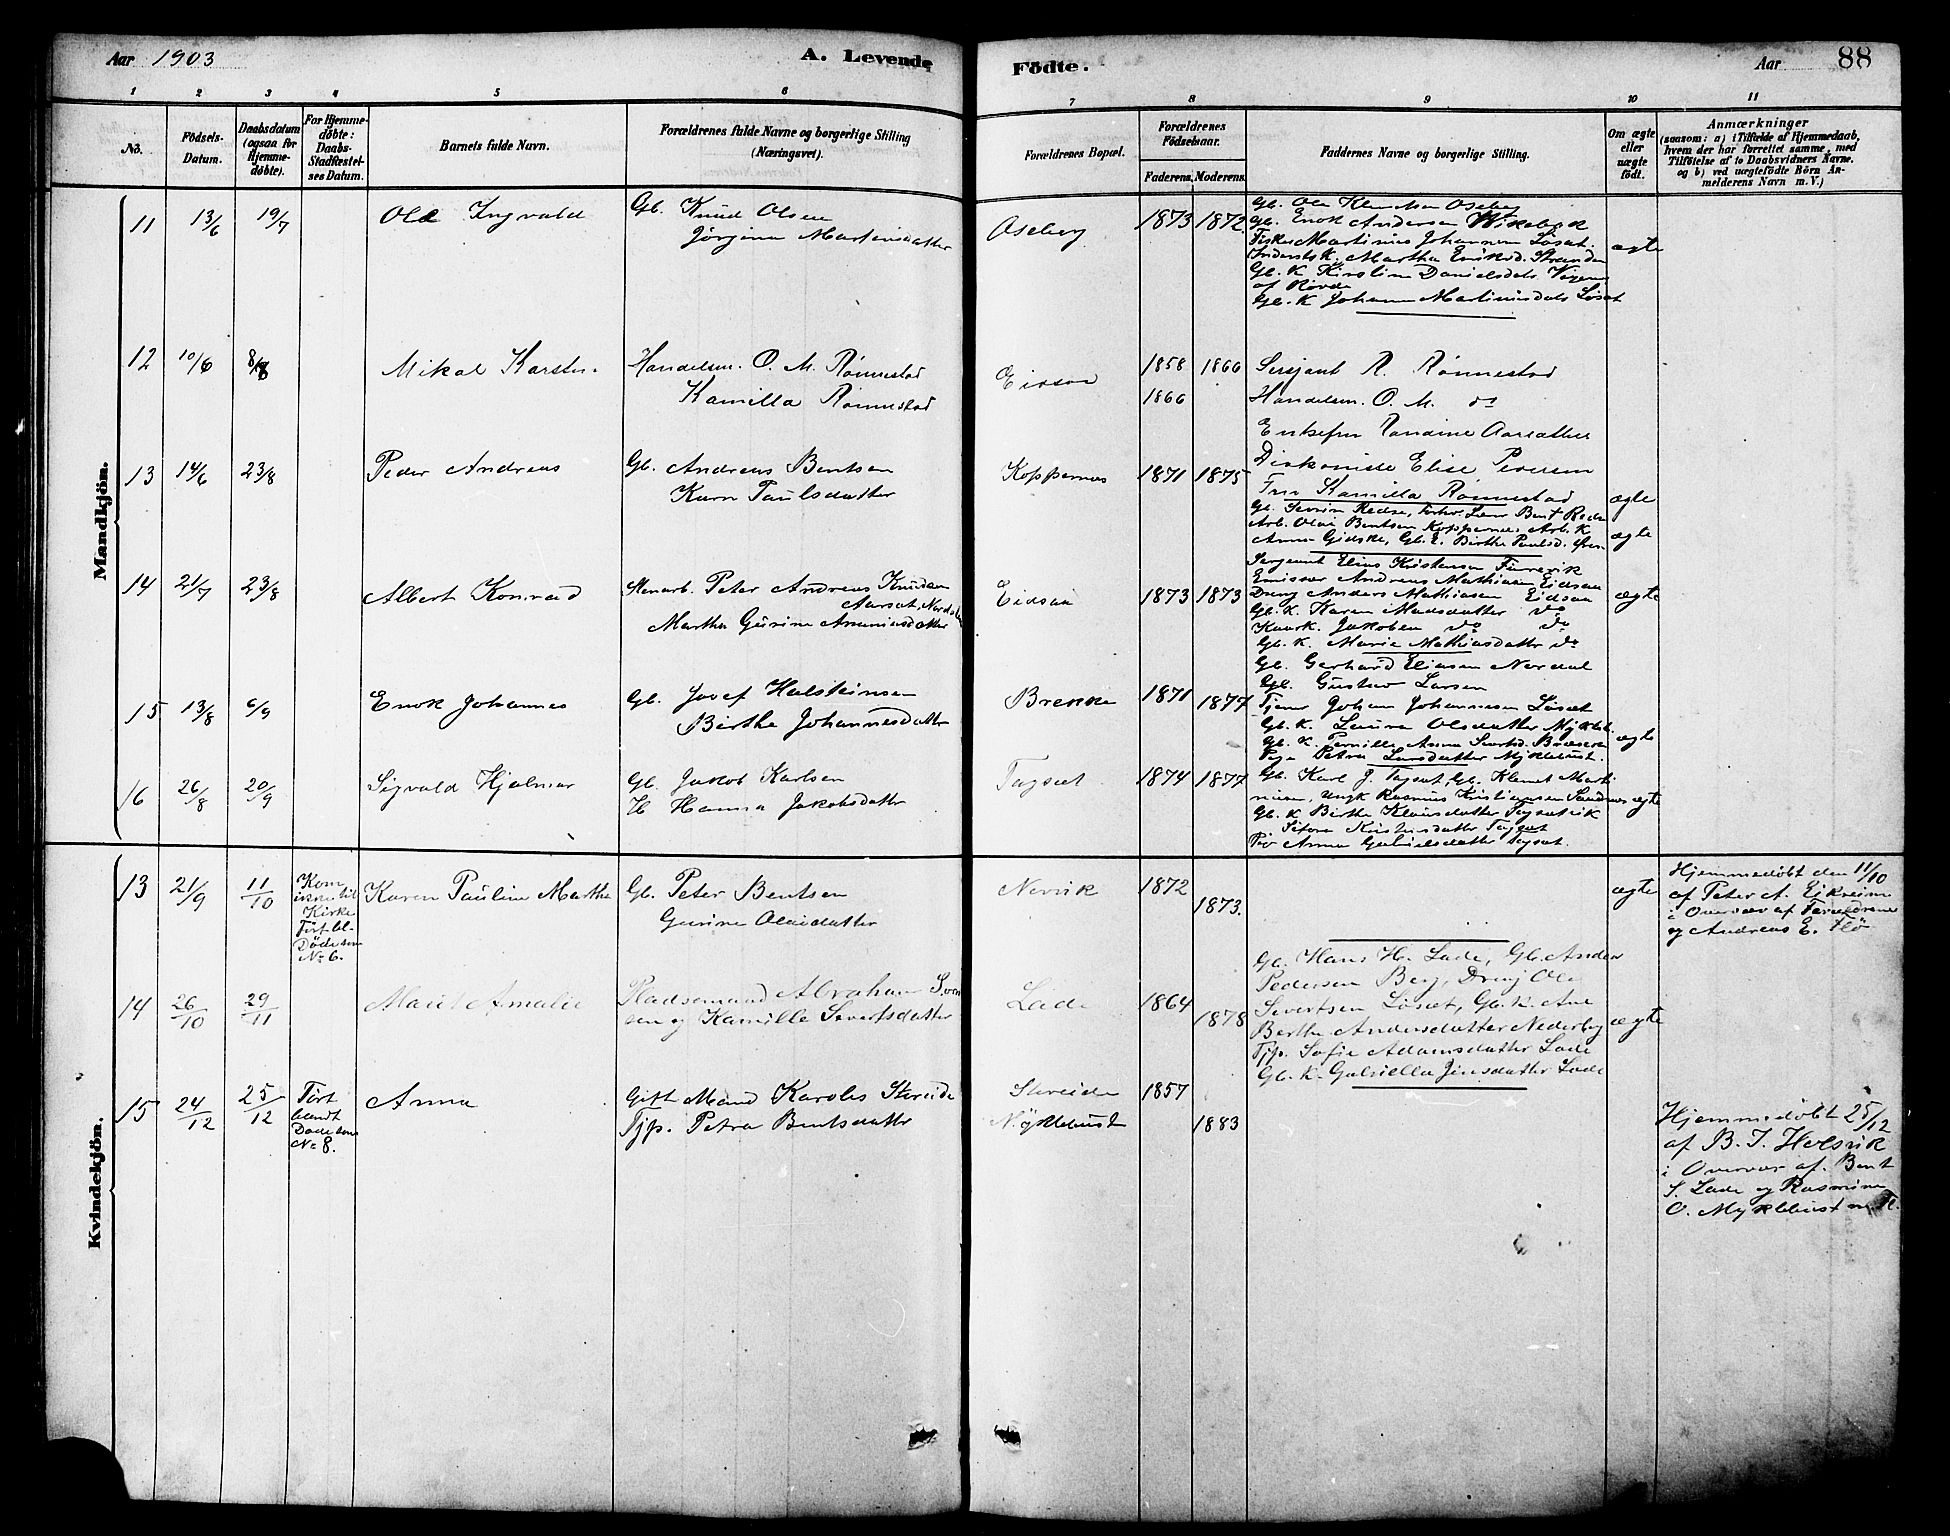 Aar 1903
A. Levende
Födte.
Aar
88
1 2 3 4 5 6 7 8 9 10 11
No.
Födsels-Datum.
Daabsdatum (ogsaa for Hjemme-döbte).
For Hjemme-döbte: Daabs-Stadfæstel-ses Datum.
Barnets fulde Navn.
Forældrenes fulde Navne og borgerlige Stilling (Næringsvei).
Forældrenes Bopæl.
Forældrenes Födselsaar.
Faderens. Moderens.
Faddernes Navne og borgerlige Stilling.
Om ægte eller uægte födt.
Anmærkninger
(saasom: a) i Tilfælde af Hjemmedaab, hvem der har forrettet samme, med Tilföielse af to Daabsvidners Navne. og b) ved uægtefödte Börn An-melderens Navn m. V.)
Mandkjön.
11 13/6 19/7 Ole Ingvald
Gb. Knud Olsen
Jörgine Martinsdatter
Aseberg 1873 1872
Gb. Enok Andersen
Fisker Martinus Johannesen Løset.
Gb. K. Kirstine Danielsdatr
af Rovde
Gb. K Johanne Martinusdatr Løset
ægte
12 10/6 8/8 Mikal Karsten
Handelsm. O. M. Rönnestad
Kamilla Rönnestad
Eidsaa 1858 1866
1866
Sersjant R. Rönnestad
Handelsm. O. M. do
Enkefru Randine Aarsæther
Diakonisse Elise Petersen
Fru Kamilla Rönnestad
ægte
13 14/6 23/8 Peder Andreas
Gb. Andreas Bentsen
Karn Paulsdatter
Koppernæs 1871 1875
Arb. Olai Bentsen Koppernæs, Arb. K
Anna Gidske, Gb. E. Birthe Paulsd.
ægte
14 21/7 23/8 Albert Konrad
Stenarb. Peter Andreas Knudsen
Aarset, Nordalen
Martha Gurine
Eidsaa 1873 1873
Sergeant Elias Kristensen
Emissær Andreas Mathiasen Eidsaa
Dreng Anders Mathiasen Eidsaa
Gb. K. Karen Madsdatter do
Jakobsen do do
Gb. K. Marie Mathiasdatter do
ægte
15 13/8 6/9 Enok Johannes
Gb. Josef Halsteinsen
Birthe Johannesdatter
Brekke 1871 1877
Gb. Gerhard Eliasen Nordal
Gb. Gustav Larsen
Tjener Johan Johannesen Löset
Gb. K. Laura Olsdatter Myklebt.
Pige Petra Larsdatter Myklebust.
ægte
16 26/8 20/9 Sigvald Hjalmar
Gb. Jakob Karlsen
H. Hanna Jakobsdatter
Tagsæt 1874 1877
Gb. Karl J. Tagsæt, Gb. Klemet Marti-
nisen, Ungk Rasmus Kristiansen Sandnæs
Gb. K Birthe
Pige Anna Gabrielsdatter Tagsæt.
ægte
Kvindekjön.
13 21/9 11/10
Kom ikke til Kirke Fört bl. Döde som No 6.
Karen Pauline Marthe
Gb. Peter Bentsen
Gurine Olaidatter
Nevrik 1872 1873.
ægte
Hjemmedöbt den 11/10
af Peter A. Eikreim
i Overvær af Forældrene
og Andreas E. Flö
14 26/10 29/11 Marit Amalie
Pladsemand Abraham Sven
sen og Kamille Severtsdatter
Lade 1864 1878
Gb. Hans H. Lade, Gb. Anders
Pedersen Berg, Dreng Ole
Severtsen Løset, Gb. K. Ane
Berthe Andersdatter Nederby
Tjp. Sofie Adamsdatter Lade
Gb. K. Gabriella Jensdatter Lade
ægte
15 24/12 25/12
Fört blandt Döde som No 8.
Anna
Gift Mand Karolus Støreide
Tjp. Petra Bentsdatter
Støreide 1857
Myklebust 1883
Hjemmedöbt 25/12
af B. J. Holsvik
i Overvær af Bent
S. Lade og Rasmine
O. Myklebust